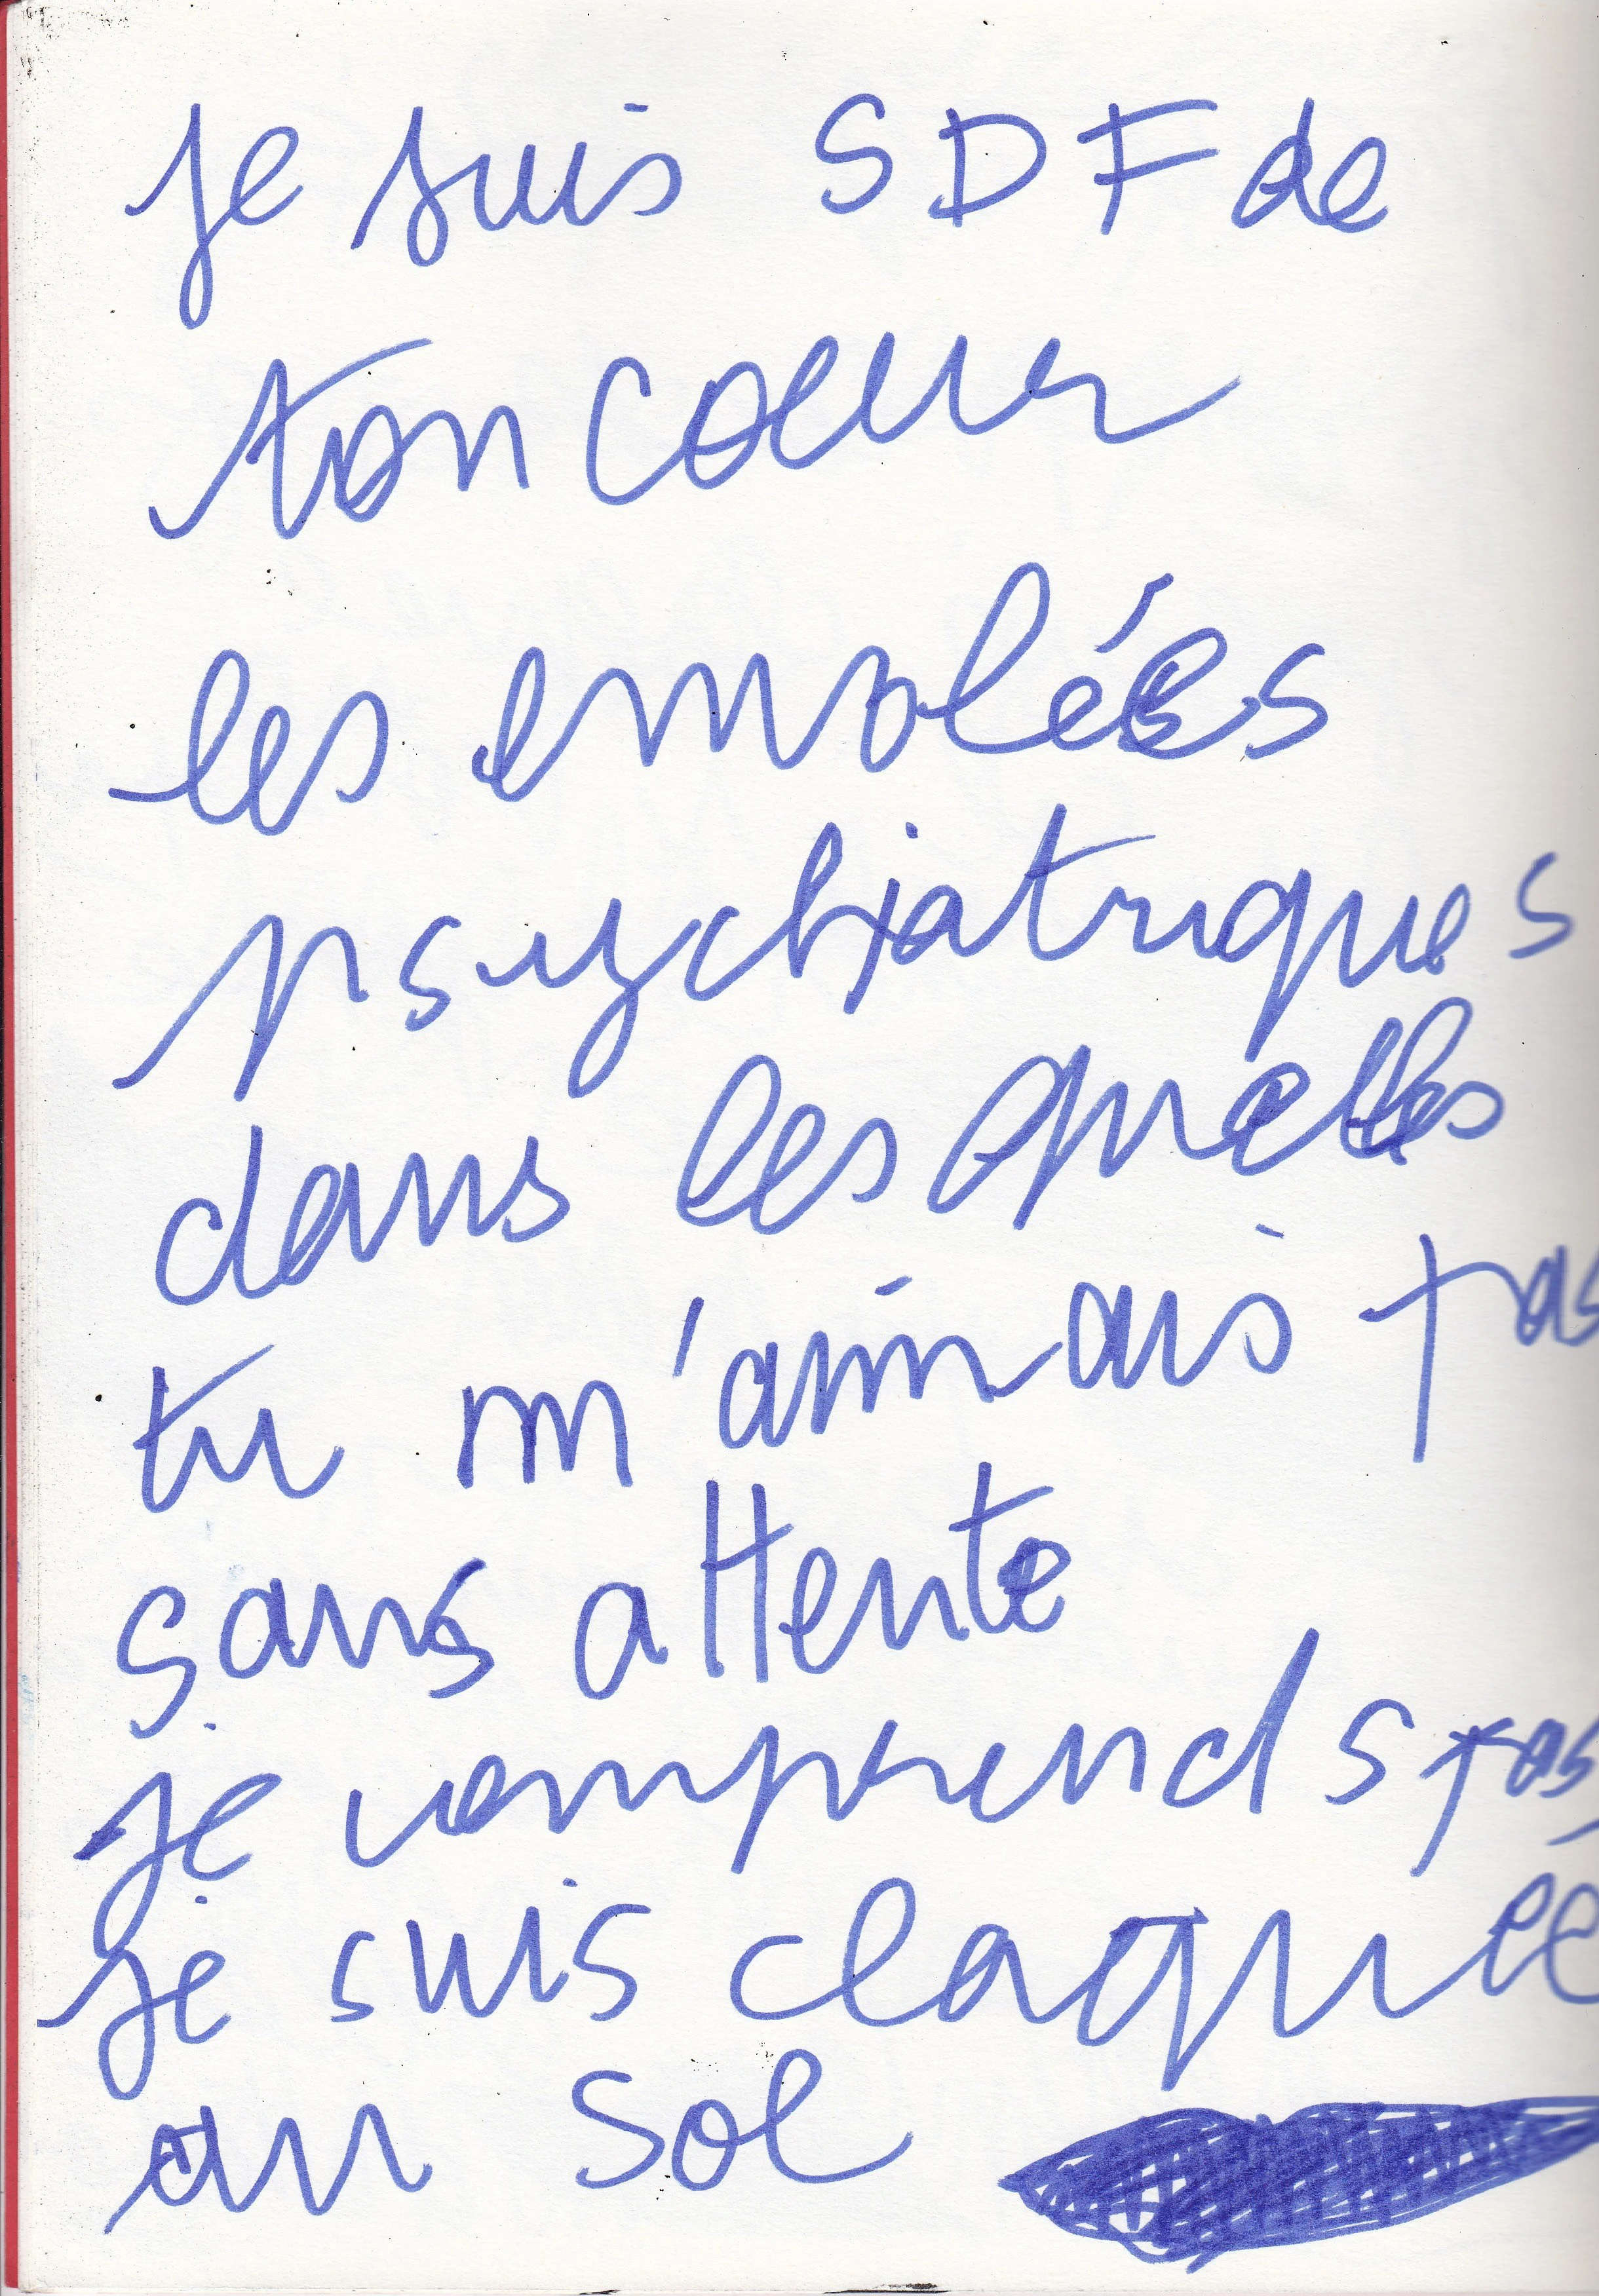 je suis SDF de
ton coeur
les envolées
psychiatriques
dans les quelles
tu m'aimais pas
sans attente
je comprends pas
je suis claquée
au sol